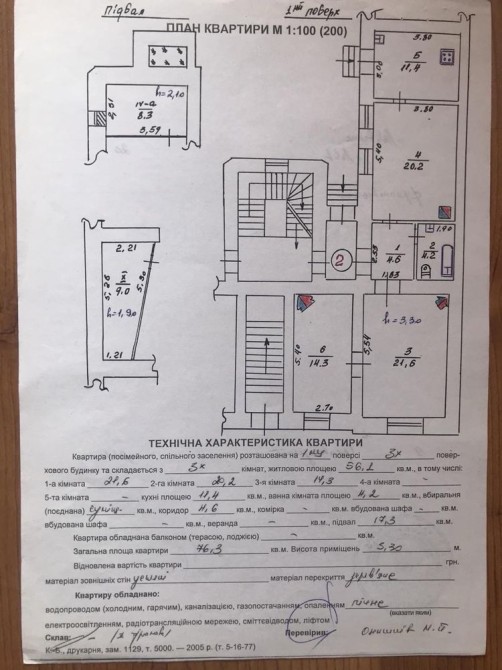 Підвал
1ий поверх
ПЛАН КВАРТИРИ М 1:100 (200)
h=2,10
IV-а
8.3
2,31
3,59
2,21
X
9.0
5,26
5,30
h=1,90
1,21
3.80
5
11,4
3,00
3.80
4
20.2
5,40
2
1
4.6
1,83
1,40
2
4.2
6
14.3
5,40
2.70
h=3,30
3
21,6
5,54
ТЕХНІЧНА ХАРАКТЕРИСТИКА КВАРТИРИ
Квартира (посімейного, спільного заселення) розташована на 1му поверсі 3х повер-
хового будинку та складається з 3х кімнат, житловою площею 56,1 кв.м., в тому числі:
1-а кімната 21,6 2-га кімната 20,2 3-я кімната 14,3 4-а кімната –
5-та кімната – кухні площею 11,4 кв.м., ванна кімната площею 4,2 кв.м., вбиральня
(поєднана) кв.м., коридор 4,6 кв.м., комірка – кв.м. вбудована шафа – кв.м.
вбудована шафа – кв.м., веранда – кв.м., підвал 17,3 кв.м.
Квартира обладнана балконом (терасою, лоджією) – кв.м.
Загальна площа квартири 76,3 кв.м. Висота приміщень 3,30 м.
Відновлена вартість квартири грн.
матеріал зовнішніх стін цегла матеріал перекриття дерев'яне
Квартиру обладнано:
водопроводом (холодним, гарячим), каналізацією, газопостачанням, опаленням пічне
(вказати яким)
електроосвітленням, радіотрансляційною мережею, сміттєвідводом, ліфтом
Склав: Перевірив: Онишків Н.П.
К.-Б., друкарня, зам. 1129, т. 5000. — 2005 р. (т. 5-16-77)